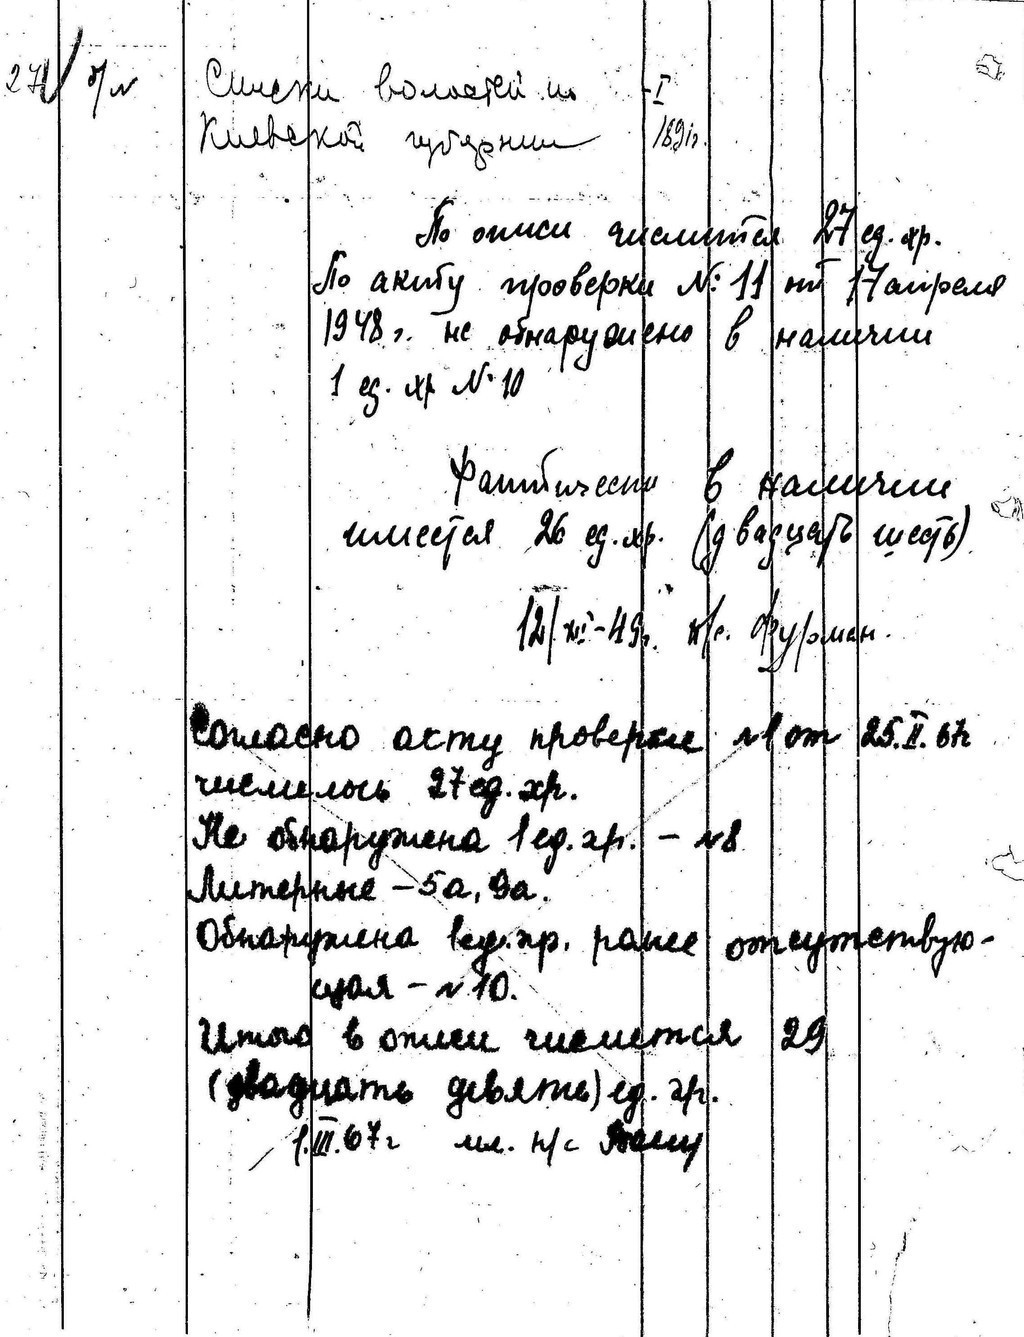 27 б/н Списки волостей по - I
Киевской губернии 1891г.
По описи числится 27 ед. хр.
По акту проверки №: 11 от 17 апреля
1948 г. не обнаружено в наличии
1 ед. хр № 10
Фактически в наличии
имеется 26 ед. хр. (двадцать шесть)
12/XI-49г. н/с. Фурман.
Согласно акту проверки №1 от 25.II.67г
числилось 27 ед. хр.
Не обнаружена 1 ед. хр. - №8
Литерные - 5а, 9а.
Обнаружена 1 ед. хр. ранее отсутствую-
щая - №10.
Итого в описи числится 29
(двадцать девять) ед. хр.
1.III.67г мл. н/с